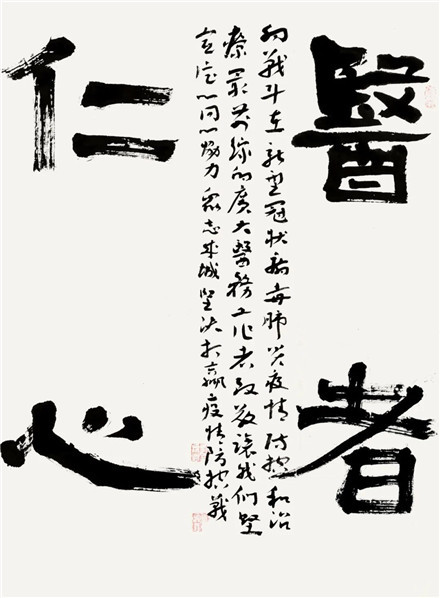 醫者
向戰斗在新型冠狀病毒肺炎疫情防控和治
療最前線的廣大醫務工作者致敬讓我們堅
定信心同心協力眾志成城堅決打贏疫情防控戰
仁心